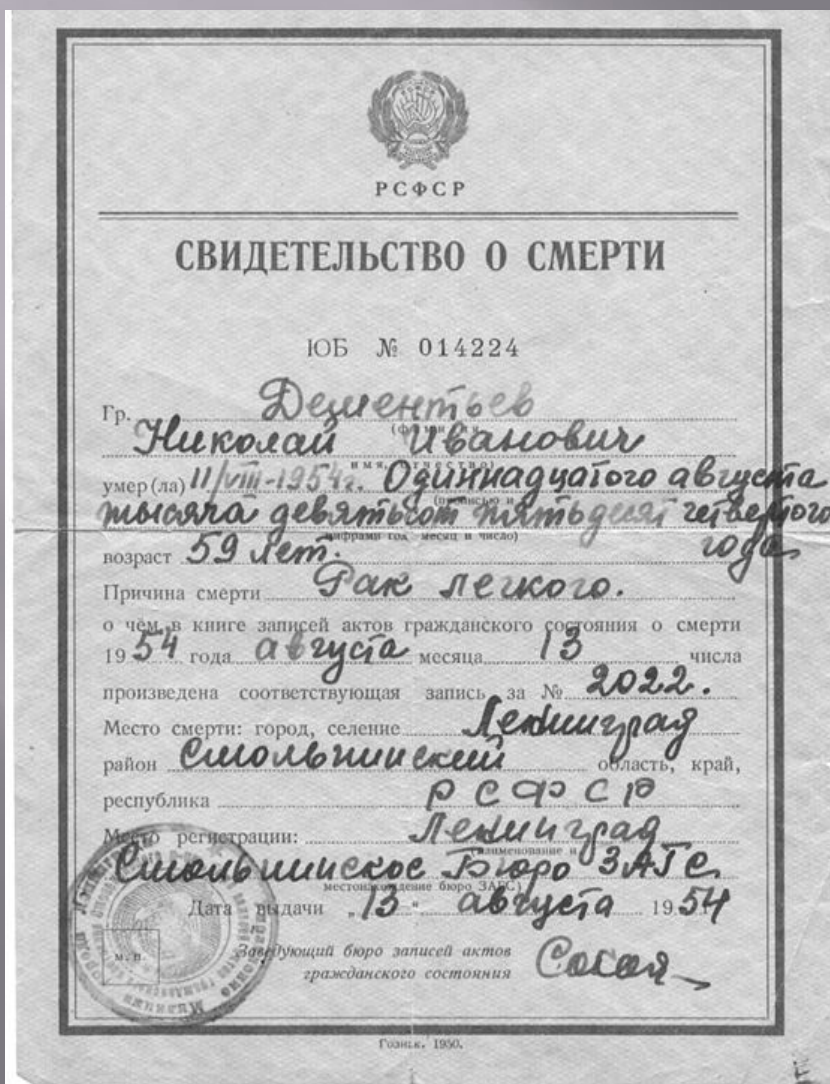 РСФСР
СВИДЕТЕЛЬСТВО О СМЕРТИ
ЮБ № 014224
Гр. Дементьев
(фамилия)
Николай Иванович
имя, отчество)
умер(ла) 11/VIII-1954г. Одиннадцатого августа
(прописью и
тысяча девятьсот пятьдесят четвертого
цифрами год месяц и число)
года
возраст 59 лет.
Причина смерти Рак легкого.
о чем в книге записей актов гражданского состояния о смерти
1954 года августа месяца 13 числа
произведена соответствующая запись за № 2022.
Место смерти: город, селение Ленинград
район Смольнинский область, край,
республика РСФСР
Место регистрации: Ленинград
(наименование и
Смольнинское Бюро ЗАГС
местонахождение бюро ЗАГС)
Дата выдачи „13“ августа 1954
м.п.
Заведующий бюро записей актов
гражданского состояния
Гознак. 1950.